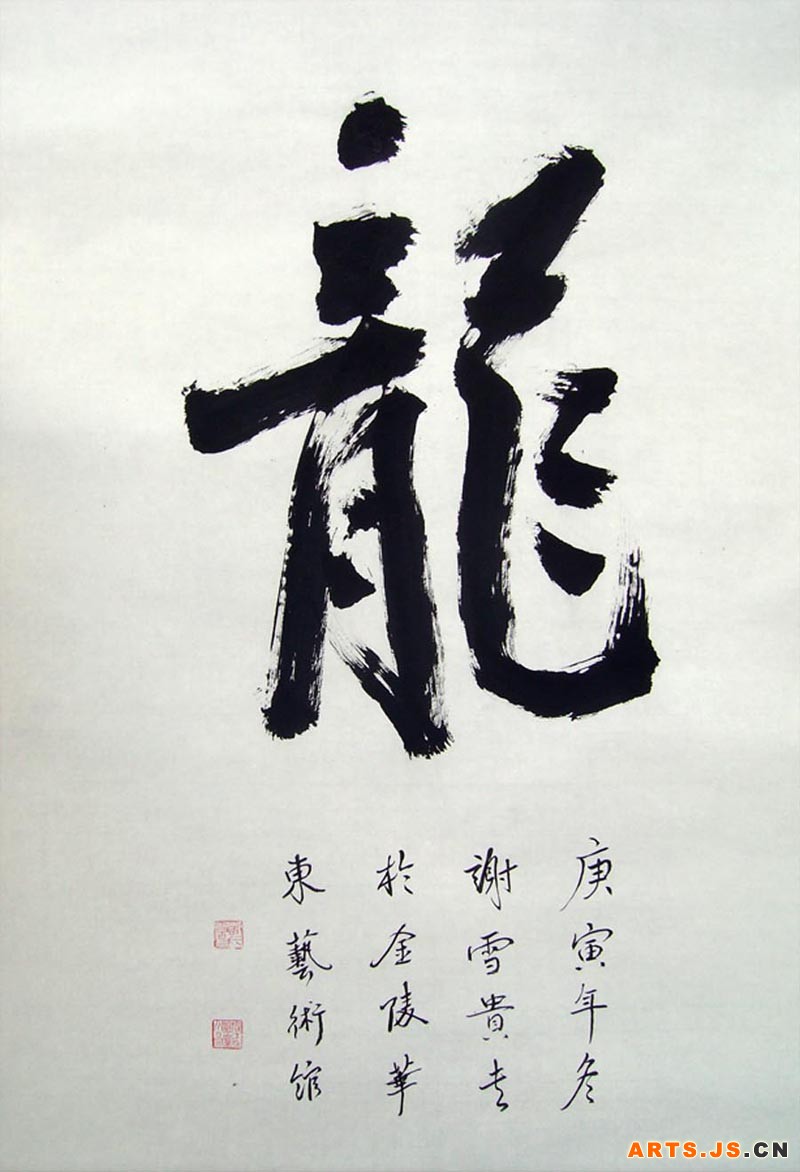 龍
庚寅年冬
謝雪貴書
於金陵華
東藝術館
ARTS.JS.CN